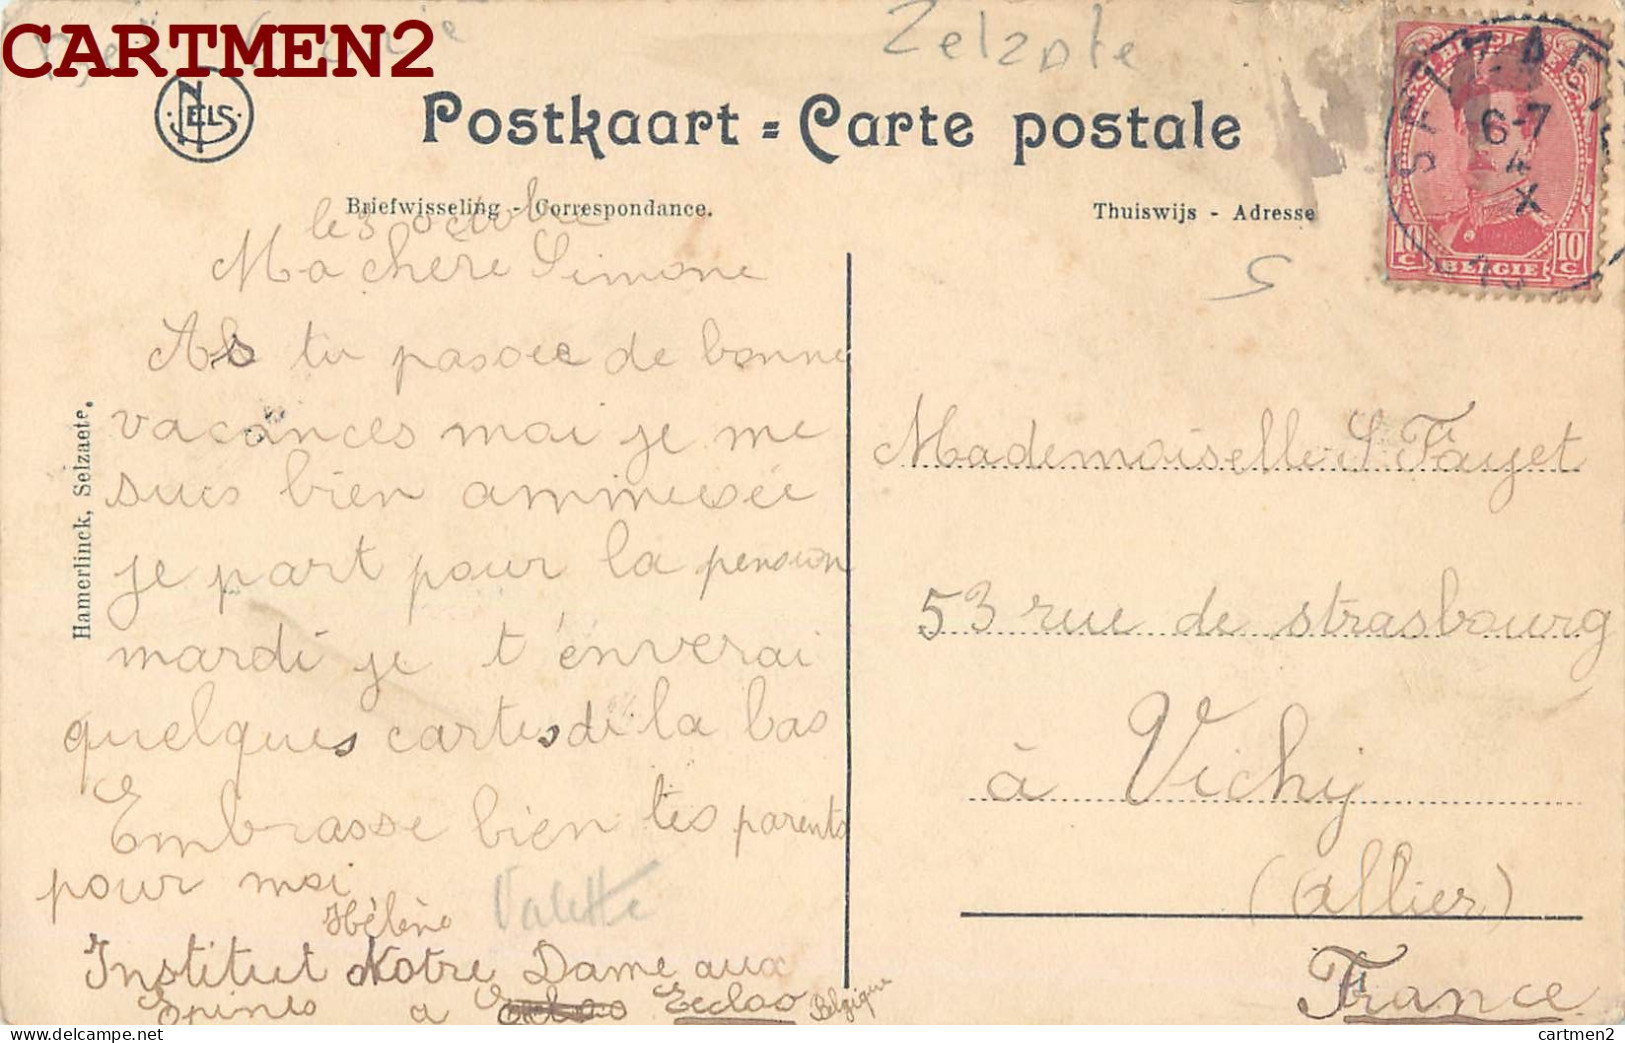 CARTMEN2
Zelzate
NELS
Postkaart = Carte postale
Briefwisseling - Correspondance.
Thuiswijs - Adresse
SELZAETE
6-7
4
X
BELGIE
10 c
10 c
Hamerlinck, Selzaete.
le 3 octobre
Ma chère Simone
As tu passée de bonne
vacances moi je me
suis bien ammusée
je part pour la pension
mardi je t'enverai
quelques cartes di la bas
Embrasse bien tes parents
pour moi
Hélène
Valette
Institut Notre Dame aux
Epines a Eecloo Belgique
Mademoiselle S Fayet
53 rue de strasbourg
à Vichy
(allier)
France
cartmen2